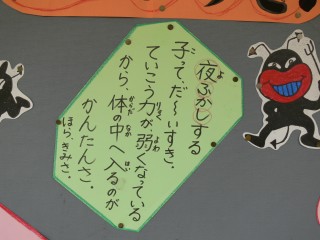 夜ふかしする
子って、だ〜いすき。
ていこう力が、弱くなっている
から、体の中へ入るのが
かんたんさ。
ほら、きみさ。